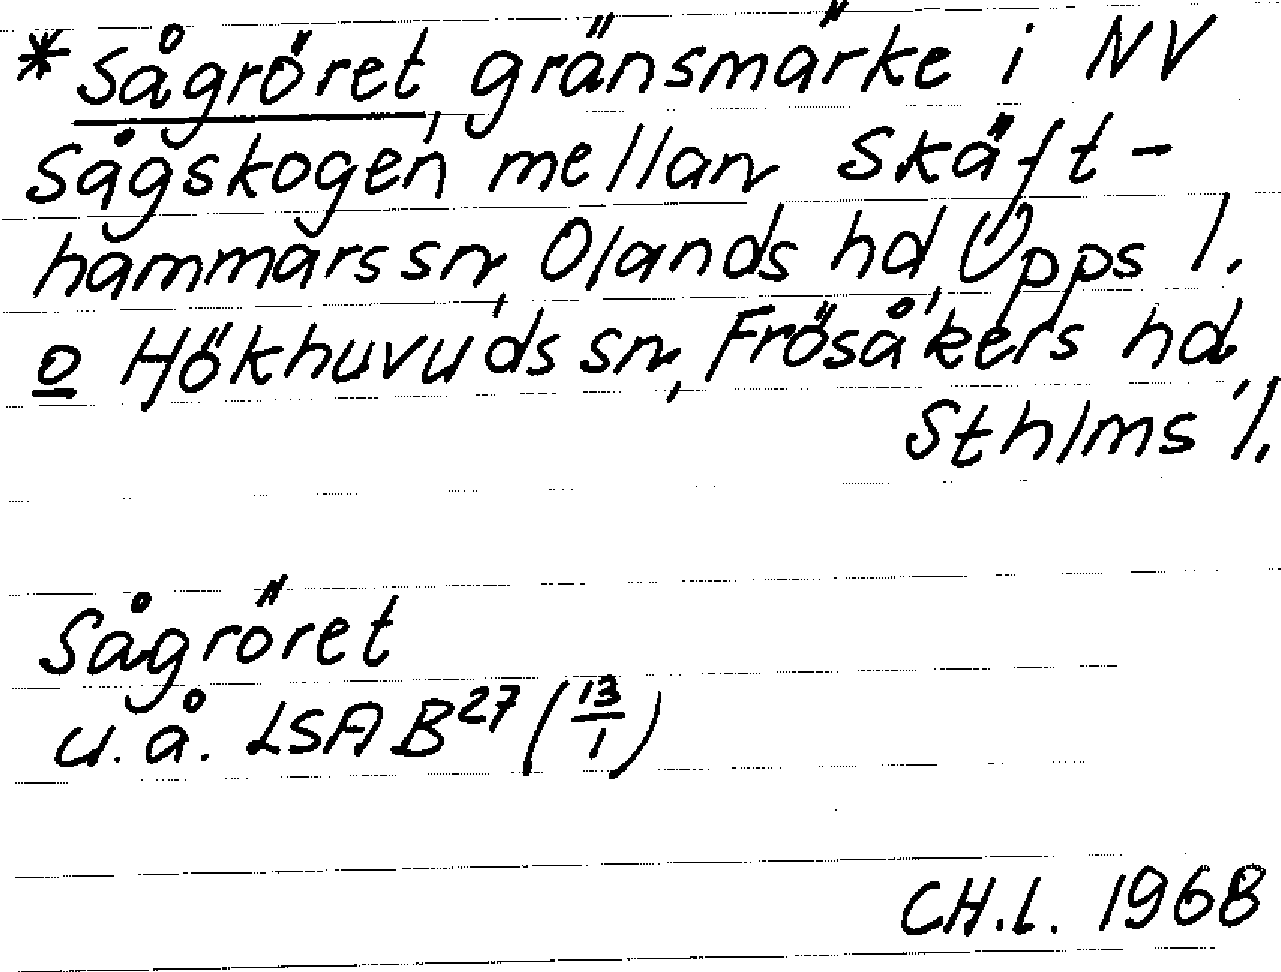 *Sågröret, gränsmärke i NV
Sågskogen mellan Skäft-
hammars sn, Olands hd, Upps l.
o Hökhuvuds sn, Frösåkers hd,
Sthlms l.
Sågröret
u.å. LSA B27 (13/1)
CH.L. 1968